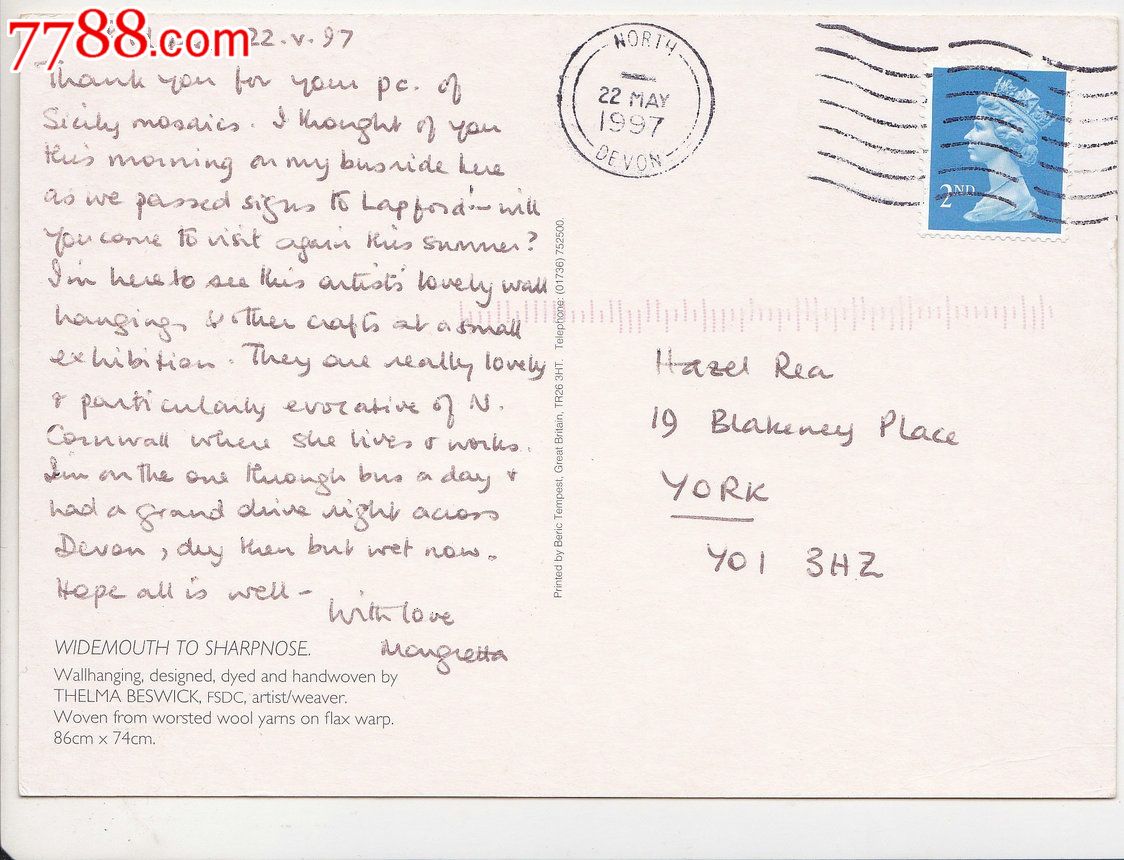 7788.com
22.v.97
Thank you for your pc. of
Sicily mosaics. I thought of you
this morning on my busride here
as we passed signs to Lapford! - will
you come to visit again this summer?
I'm here to see this artist's lovely wall
hangings & other crafts at a small
exhibition. They are really lovely
& particularly evocative of N.
Cornwall where she lives & works.
I'm on the one through bus a day &
had a grand drive right across
Devon, dry then but wet now.
Hope all is well -
With love
Margretta
WIDEMOUTH TO SHARPNOSE.
Wallhanging, designed, dyed and handwoven by
THELMA BESWICK, FSDC, artist/weaver.
Woven from worsted wool yarns on flax warp.
86cm x 74cm.
Printed by Beric Tempest, Great Britain, TR26 3HT. Telephone: (01736) 752500.
NORTH
22 MAY
1997
DEVON
2ND
Hazel Rea
19 Blakeney Place
YORK
YO1 3HZ